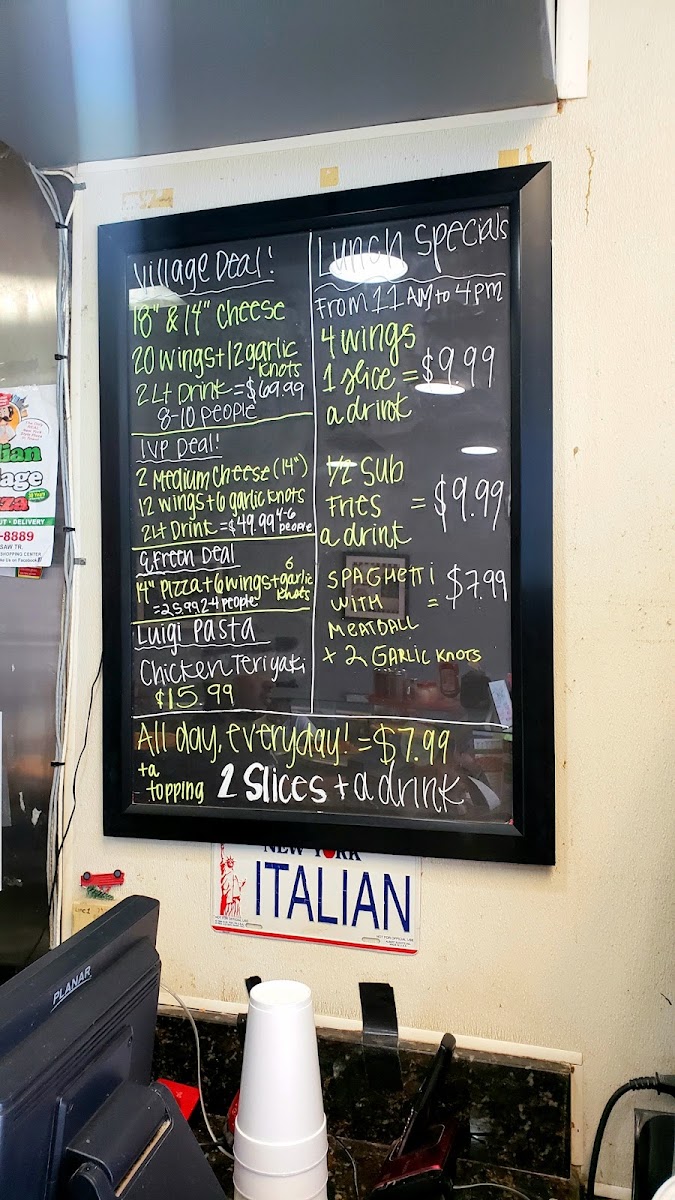 Village Deal!
18" & 14" Cheese
20 wings + 12 garlic
knots
2 Lt Drink = $69.99
8-10 people
IVP Deal!
2 Medium Cheese (14")
12 wings + 6 garlic knots
2Lt Drink = $49.99 4-6
people
Green Deal
14" Pizza + 6 wings + 6 garlic
knots
= 25.99 2-4 people
Luigi Pasta
Chicken Teriyaki
$15.99
Lunch Specials
From 11 AM to 4 pm
4 wings
1 slice = $9.99
a drink
1/2 Sub
Fries = $9.99
a drink
SPAGHETTI = $7.99
WITH
MEATBALL
+ 2 GARLIC KNOTS
All day, everyday! = $7.99
+ a
topping
2 Slices + a drink
NEW YORK
ITALIAN
PLANAR
-8889
SAW TR.
SHOPPING CENTER